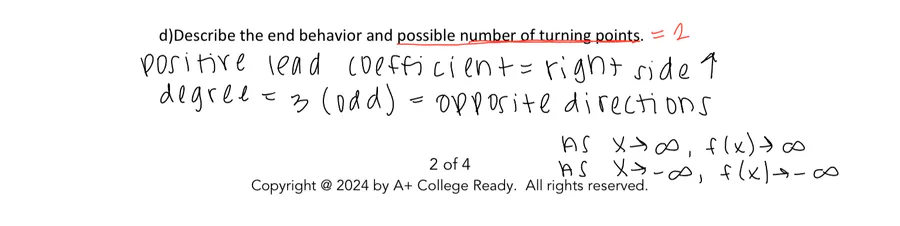 d)Describe the end behavior and possible number of turning points. = 2
positive lead coefficient = right side ↑
degree = 3 (odd) = opposite directions
As x→∞, f(x)→∞
2 of 4
As x→-∞, f(x)→-∞
Copyright @ 2024 by A+ College Ready. All rights reserved.